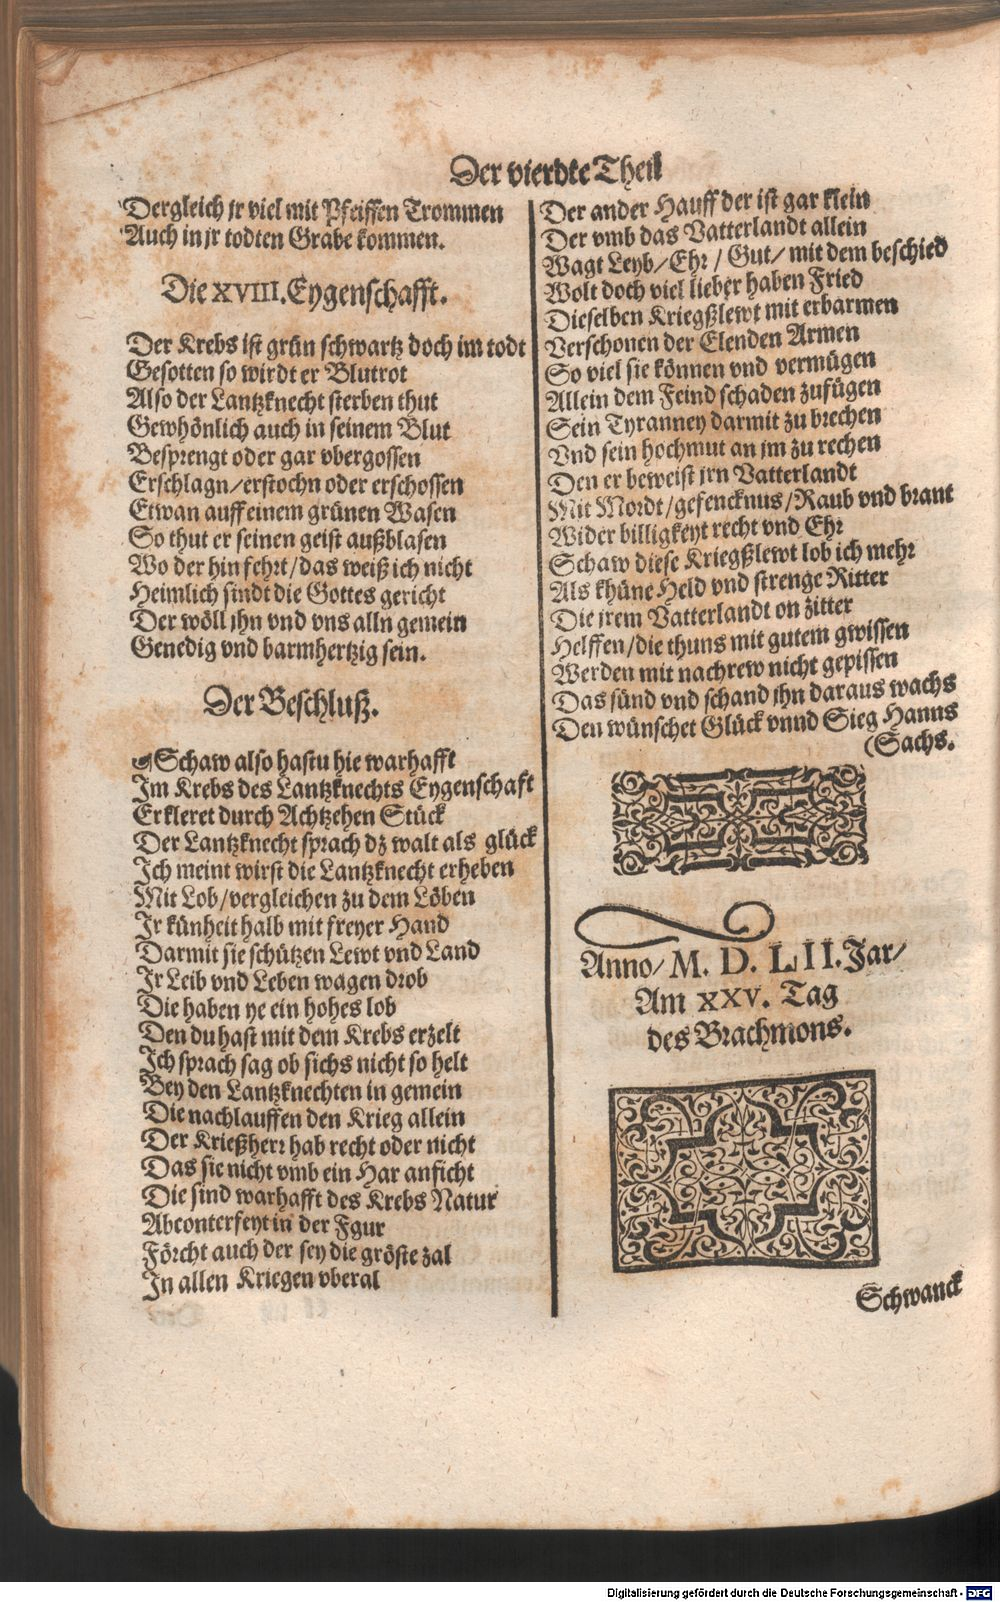 Der vierdte Theil
Dergleich jr viel mit Pfeiffen Trommen
Auch in jr todten Grabe kommen.
Die XVIII. Eygenschafft.
Der Krebs ist grün schwartz doch im todt
Gesotten so wirdt er Blutrot
Also der Lantzknecht sterben thut
Gewhönlich auch in seinem Blut
Besprengt oder gar vbergossen
Erschlagn/erstochn oder erschossen
Etwan auff einem grünen Wasen
So thut er seinen geist außblasen
Wo der hin fehrt/das weiß ich nicht
Heimlich sindt die Gottes gericht
Der wöll jhn vnd vns alln gemein
Genedig vnd barmhertzig sein.
Der Beschluß.
Schaw also hastu hie warhafft
Im Krebs des Lantzknechts Eygenschaft
Erkleret durch Achtzehen Stück
Der Lantzknecht sprach dz walt als glück
Ich meint wirst die Lantzknecht erheben
Mit Lob/vergleichen zu dem Löben
Ir künheit halb mit freyer Hand
Darmit sie schützen Lewt vnd Land
Ir Leib vnd Leben wagen drob
Die haben ye ein hohes lob
Den du hast mit dem Krebs erzelt
Ich sprach sag ob sichs nicht so helt
Bey den Lantzknechten in gemein
Die nachlauffen den Krieg allein
Der Krießherr hab recht oder nicht
Das sie nicht vmb ein Har anficht
Die sind warhafft des Krebs Natur
Abconterfeyt in der Fgur
Förcht auch der sey die gröste zal
In allen Kriegen vberal
Der ander Hauff der ist gar klein
Der vmb das Vatterlandt allein
Wagt Leyb/Ehr/Gut/mit dem beschied
Wolt doch viel lieber haben Fried
Dieselben Kriegßlewt mit erbarmen
Verschonen der Elenden Armen
So viel sie können vnd vermügen
Allein dem Feind schaden zufügen
Sein Tyranney darmit zu brechen
Vnd sein hochmut an jm zu rechen
Den er beweist jrn Vatterlandt
Mit Mordt/gefencknus/Raub vnd brant
Wider billigkeyt recht vnd Ehr
Schaw diese Kriegßlewt lob ich mehr
Als khüne Held vnd strenge Ritter
Die jrem Vatterlandt on zitter
Helffen/die thuns mit gutem gwissen
Werden mit nachrew nicht gepissen
Das sünd vnd schand jhn daraus wachs
Den wünschet Glück vnnd Sieg Hanns
(Sachs.
Anno/ M. D. LII. Jar/
Am XXV. Tag
des Brachmons.
Schwanck
Digitalisierung gefördert durch die Deutsche Forschungsgemeinschaft - DFG